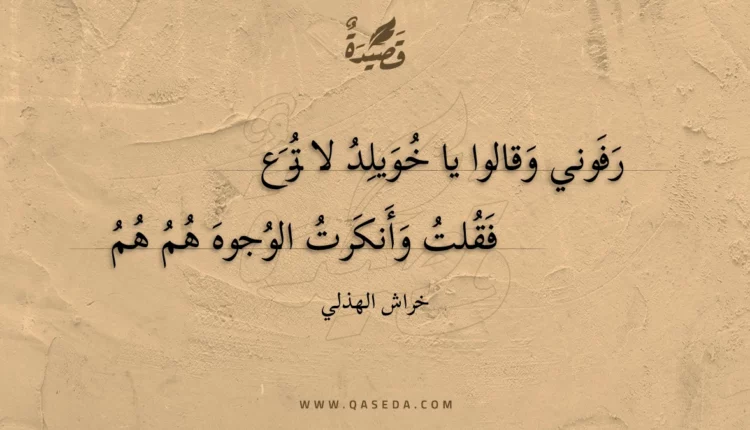 قَصِيْدَةٌ
رَفَوني وَقالوا يا خُوَيلِدُ لا تُرَع
فَقُلتُ وَأَنكَرتُ الوُجوهَ هُمُ هُمُ
خراش الهذلي
WWW.QASEDA.COM